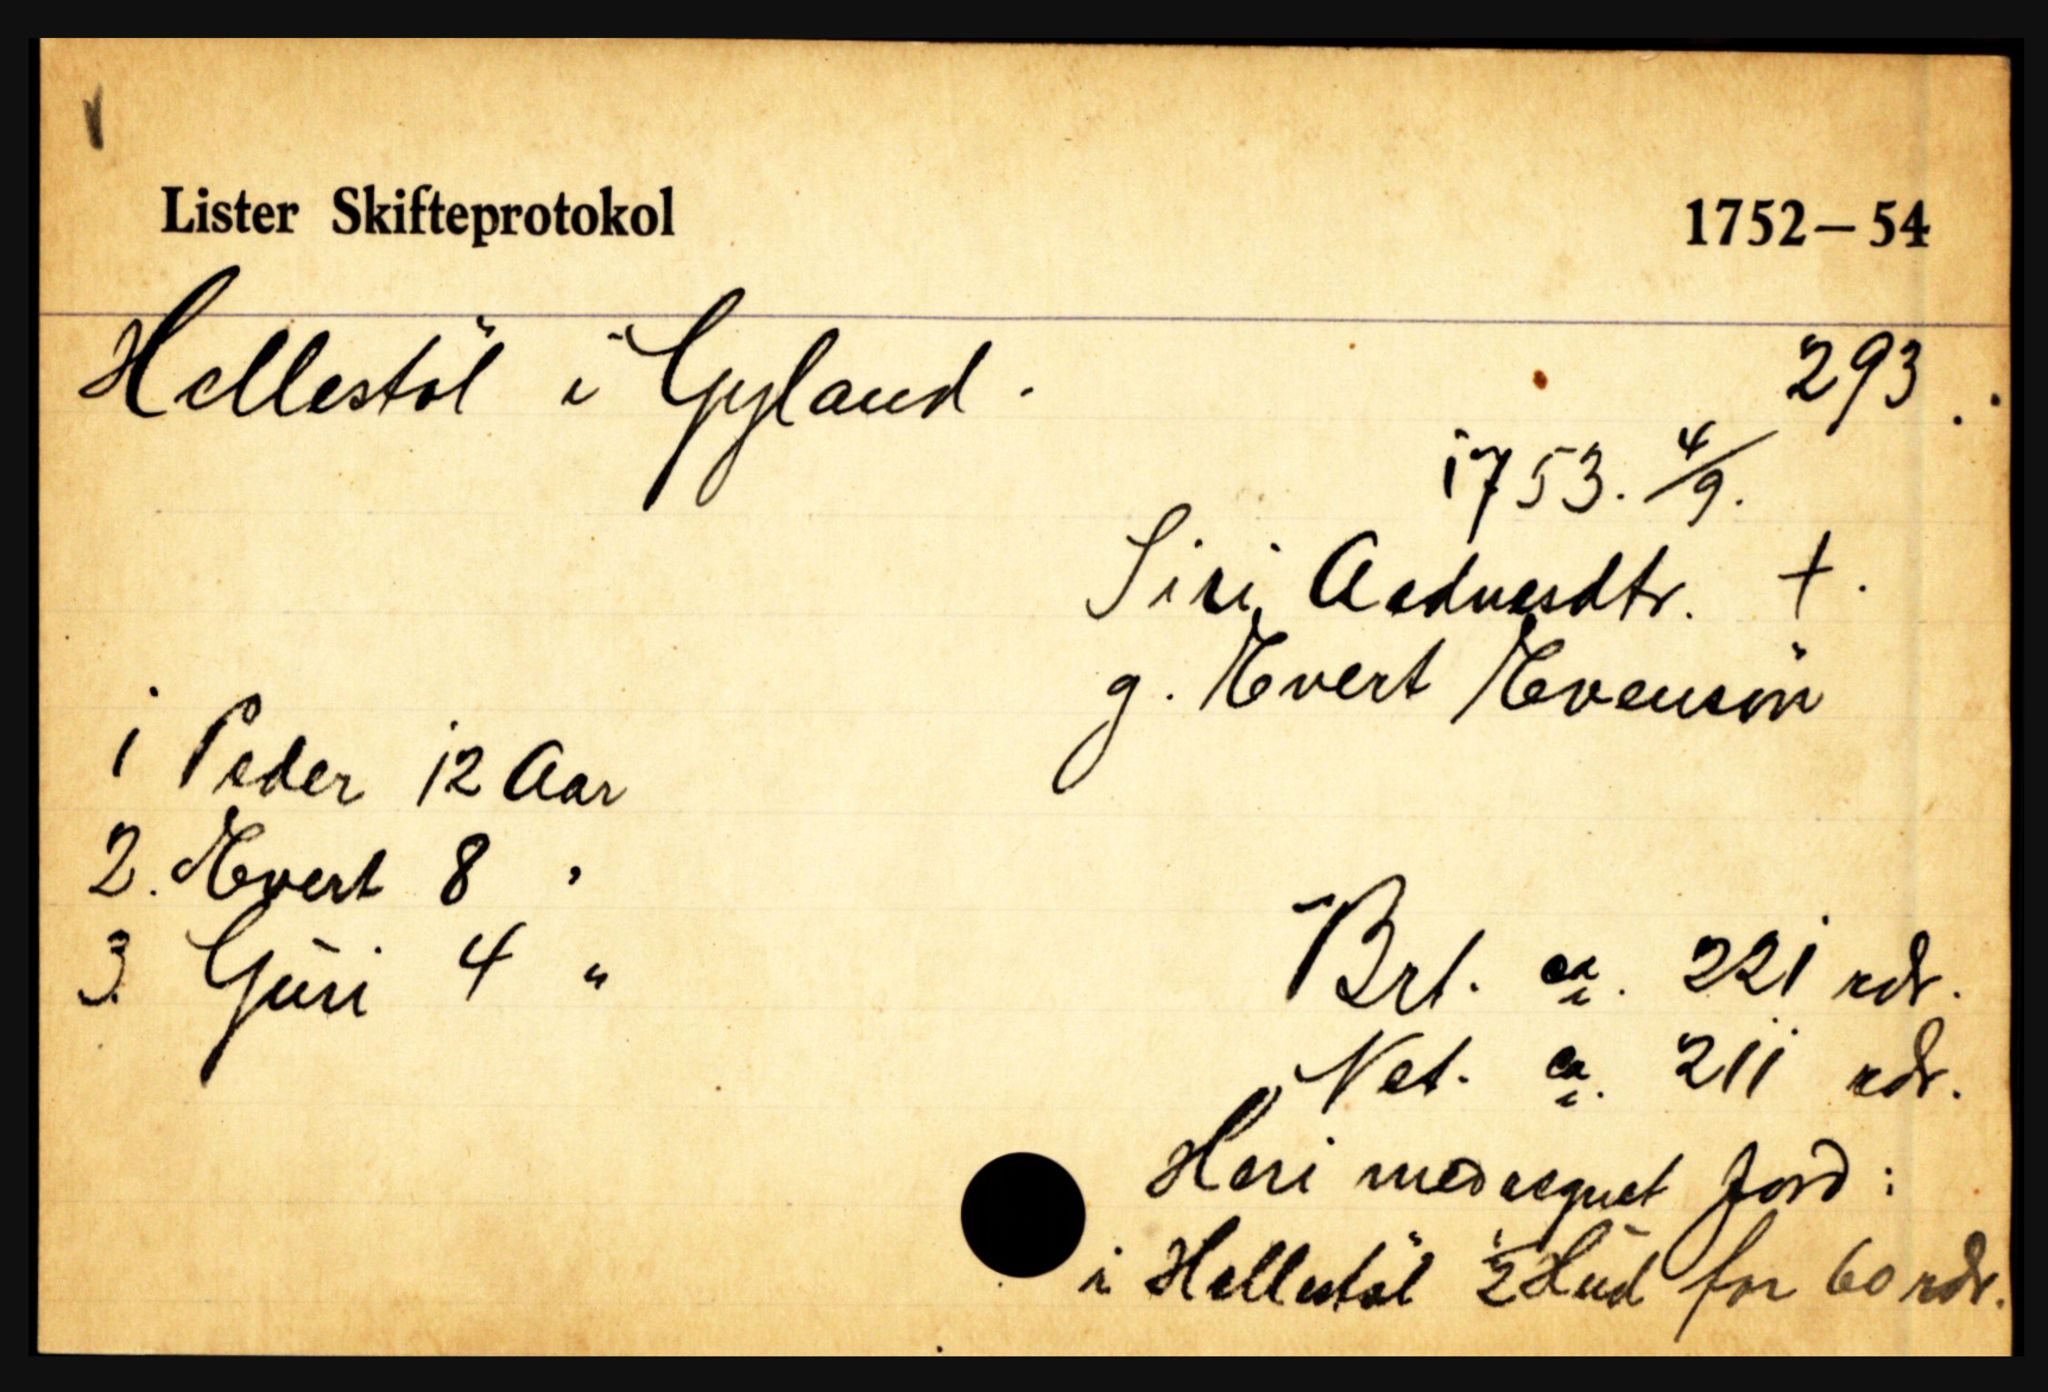 Lister Skifteprotokol 1752—54
Hellestöl i Gyland. 293.
1753. 4/9.
Siri Aadnesdtr. †.
g. Evert Evensön
1 Peder 12 Aar
2. Evert 8 "
3. Guri 4 "
Brt. ca. 221 rdr.
Net. ca. 211 rdr.
Heri medregnet Jord:
i Hellestöl ½ Hud for 60 rdr.